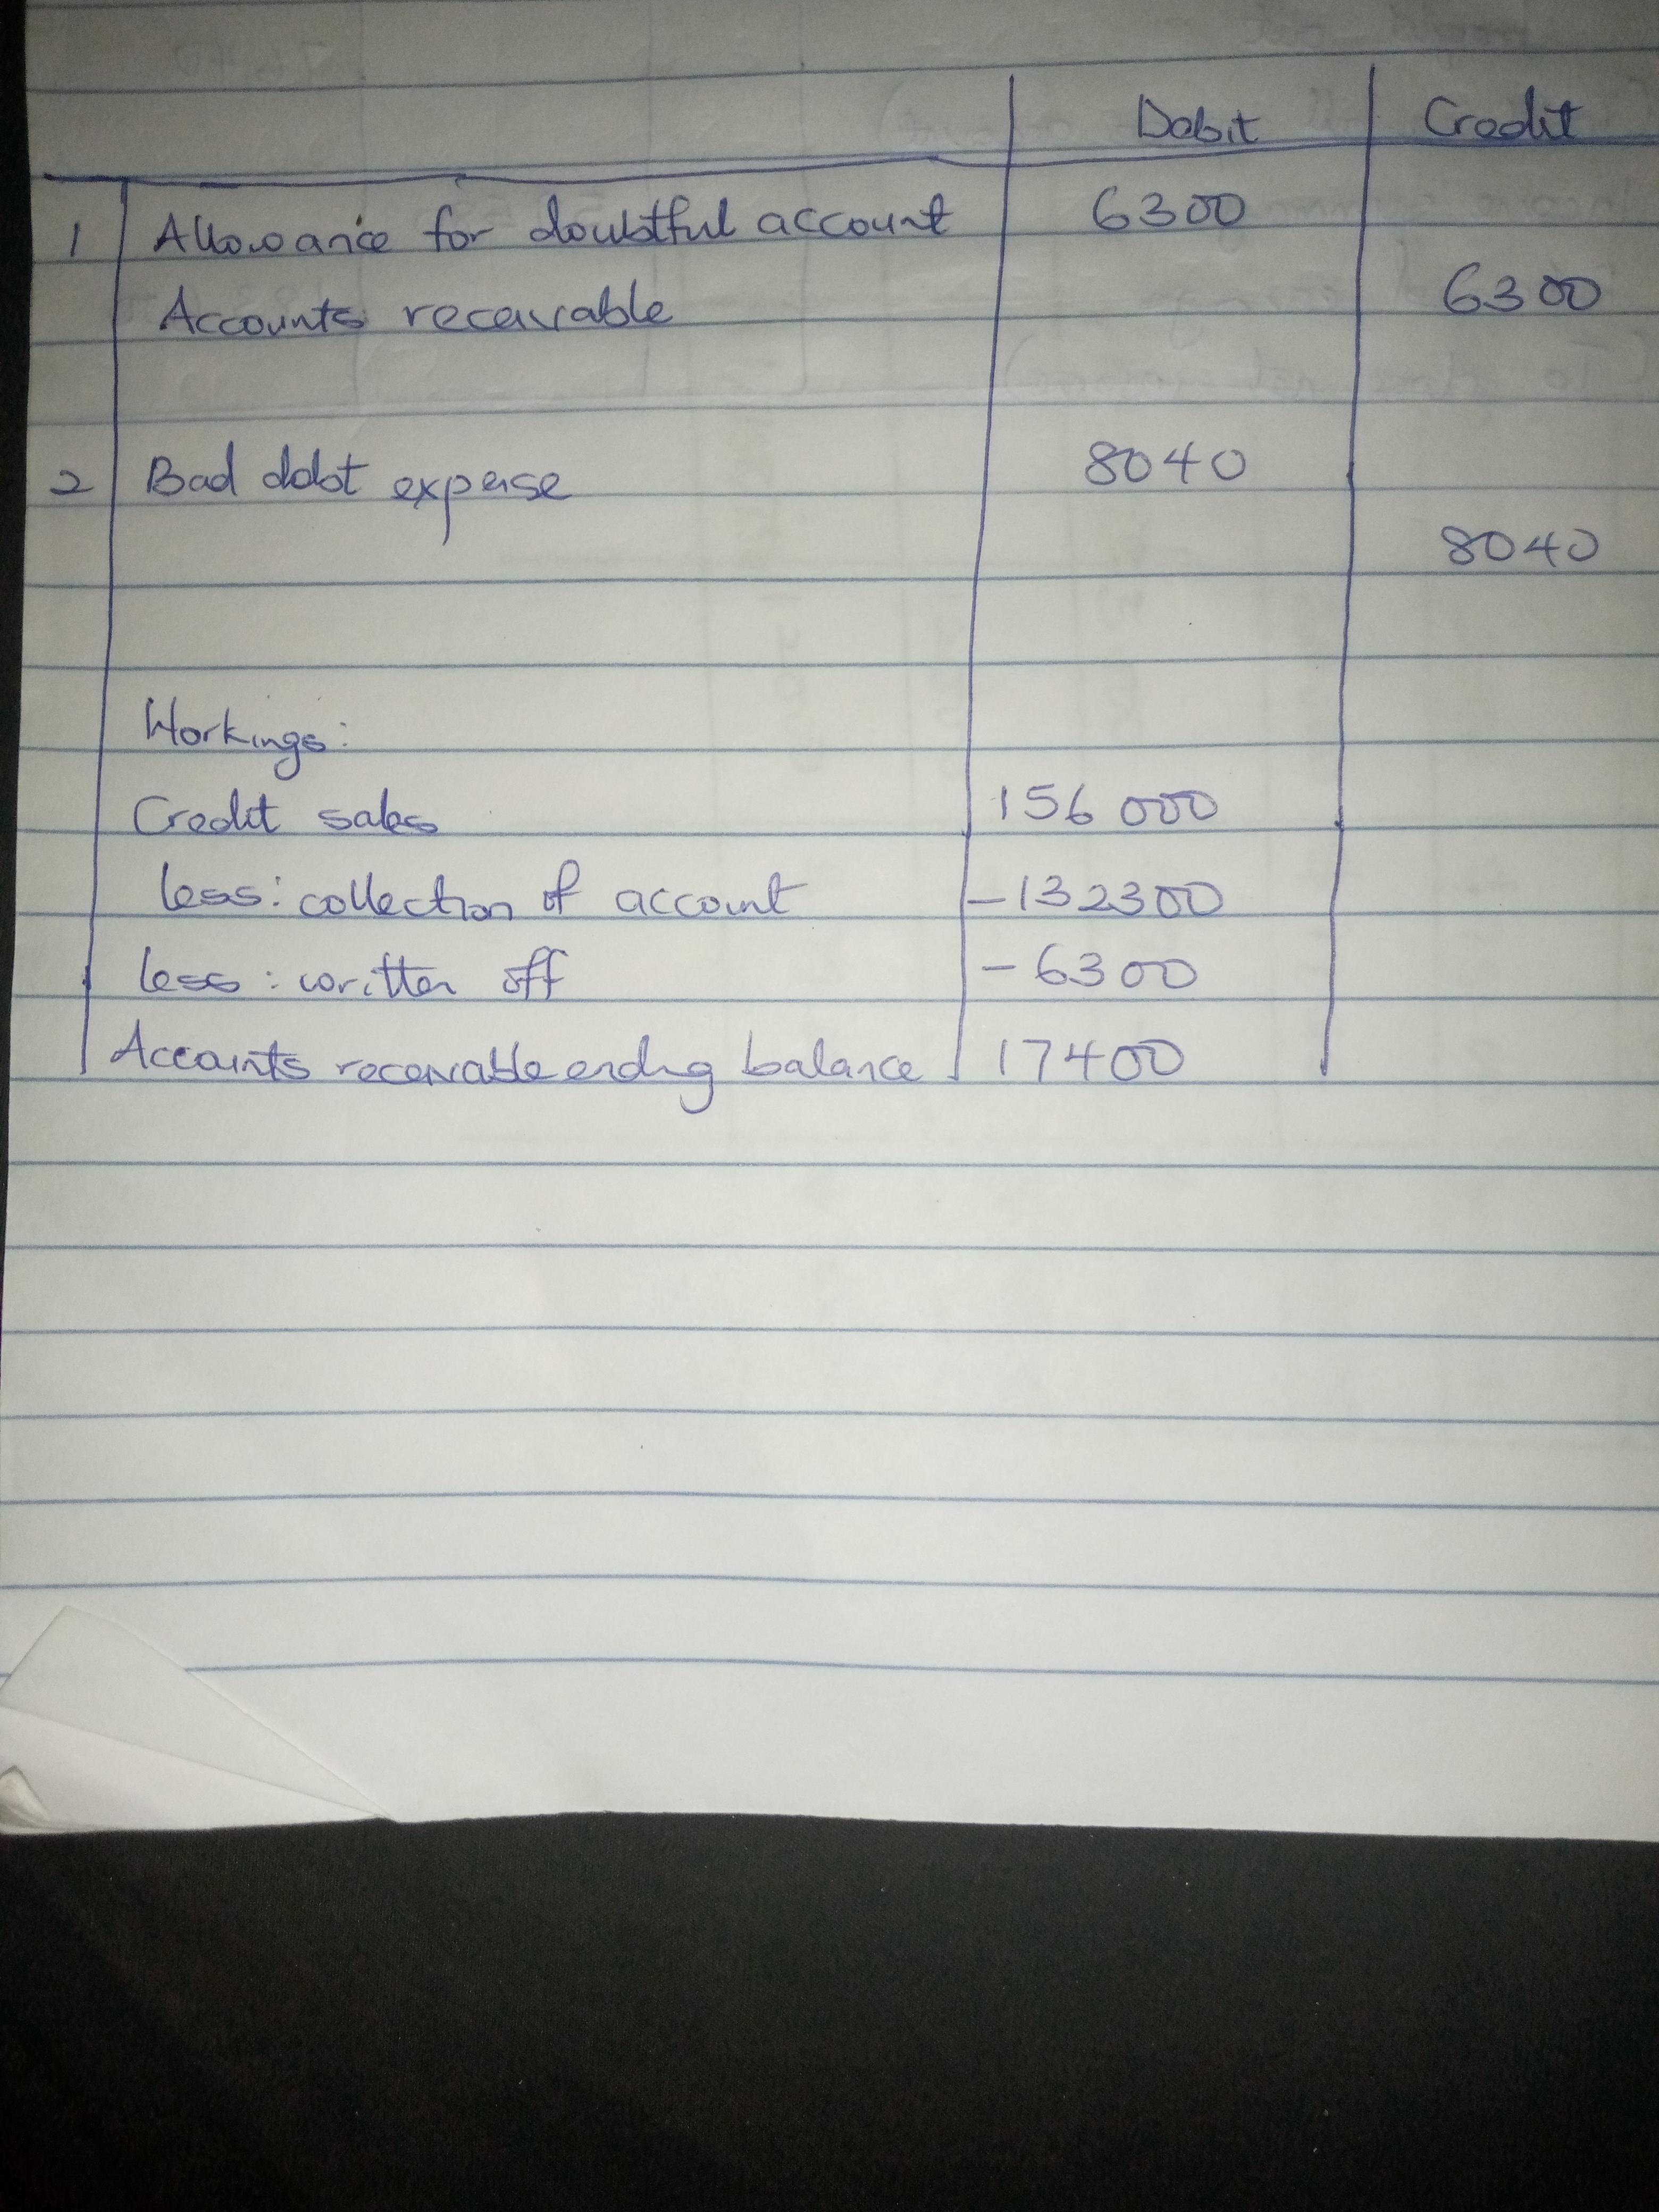 Debit Credit
1 Allowance for doubtful account 6300
Accounts receivable 6300
2 Bad debt expense 8040
8040
Workings:
Credit sales 156 000
less: collection of account -132300
less: written off -6300
Accounts receivable ending balance 17400